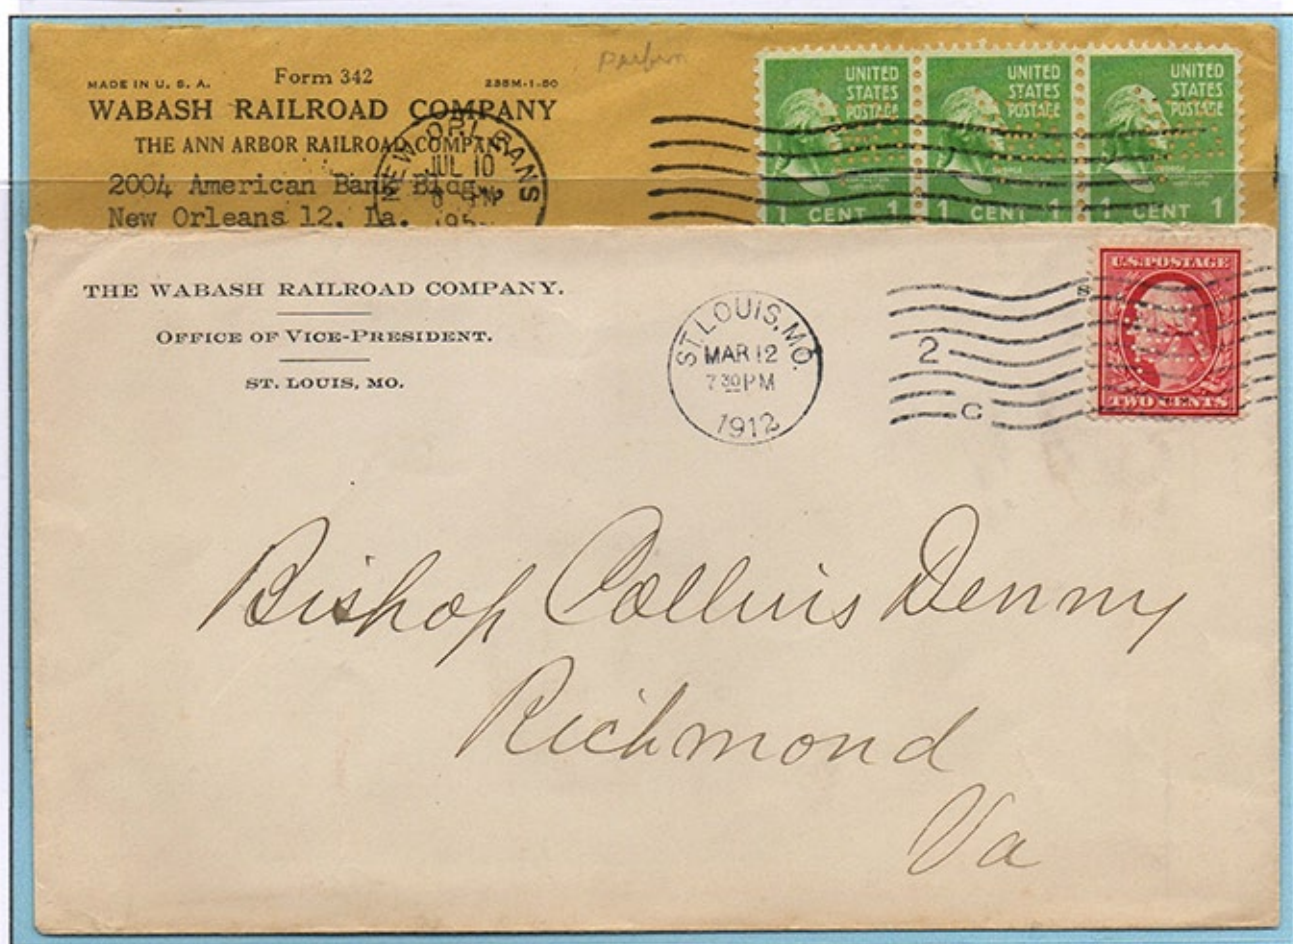 Perfin
MADE IN U. S. A.
Form 342
WABASH RAILROAD COMPANY
THE ANN ARBOR RAILROAD COMPANY
2004 American Bank Bldg.
New Orleans 12, La.
NEW ORLEANS
JUL 10
PM
UNITED
STATES
POSTAGE
1 CENT 1
UNITED
STATES
POSTAGE
1 CENT 1
UNITED
STATES
POSTAGE
1 CENT 1
THE WABASH RAILROAD COMPANY.
OFFICE OF VICE-PRESIDENT.
ST. LOUIS, MO.
ST. LOUIS, MO.
MAR 12
7 30 PM
1912
2
C
S
U.S. POSTAGE
TWO CENTS
Bishop Collins Denny
Richmond
Va